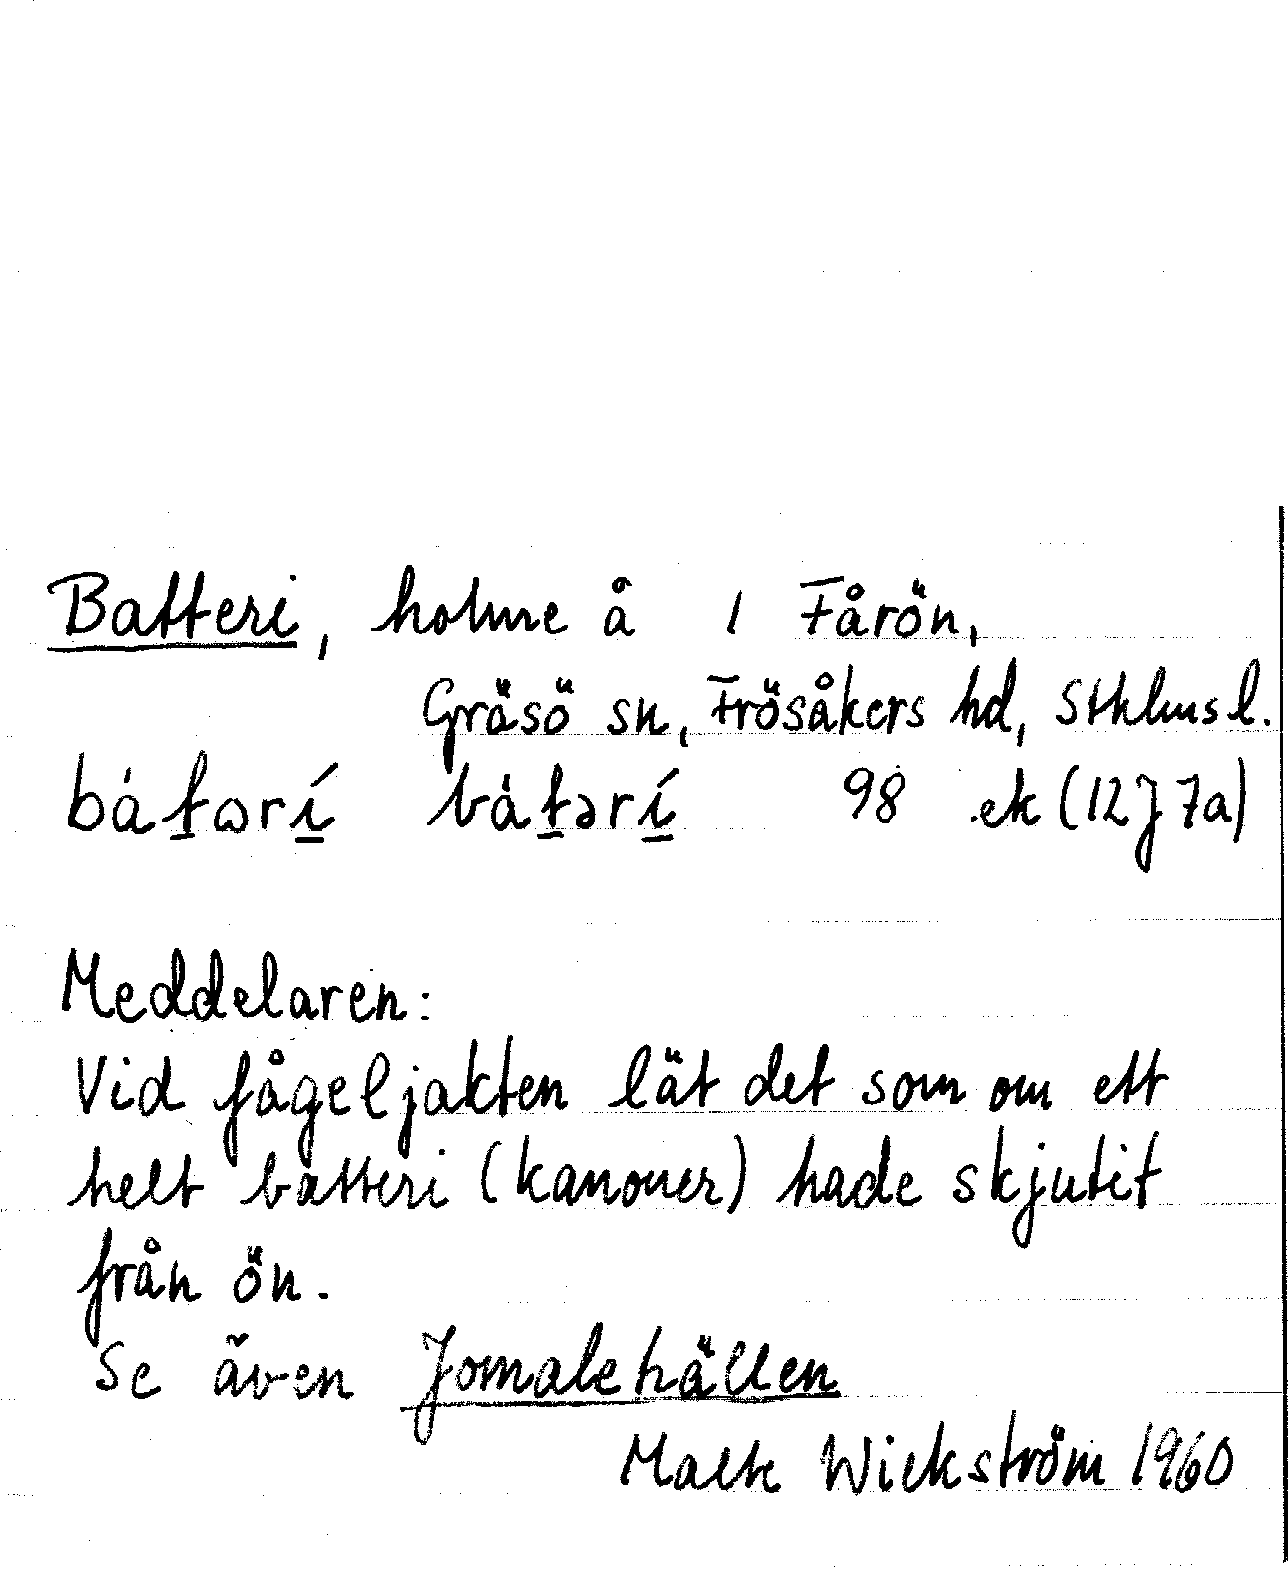 Batteri, holme å 1 Fårön,
Gräsö sn, Frösåkers hd, Sthlms l.
bátɷrí bátərí 98 ek (12J 7a)
Meddelaren:
Vid fågeljakten lät det som om ett
helt batteri (kanoner) hade skjutit
från ön.
Se även Jomalehällen
Malte Wickström 1960